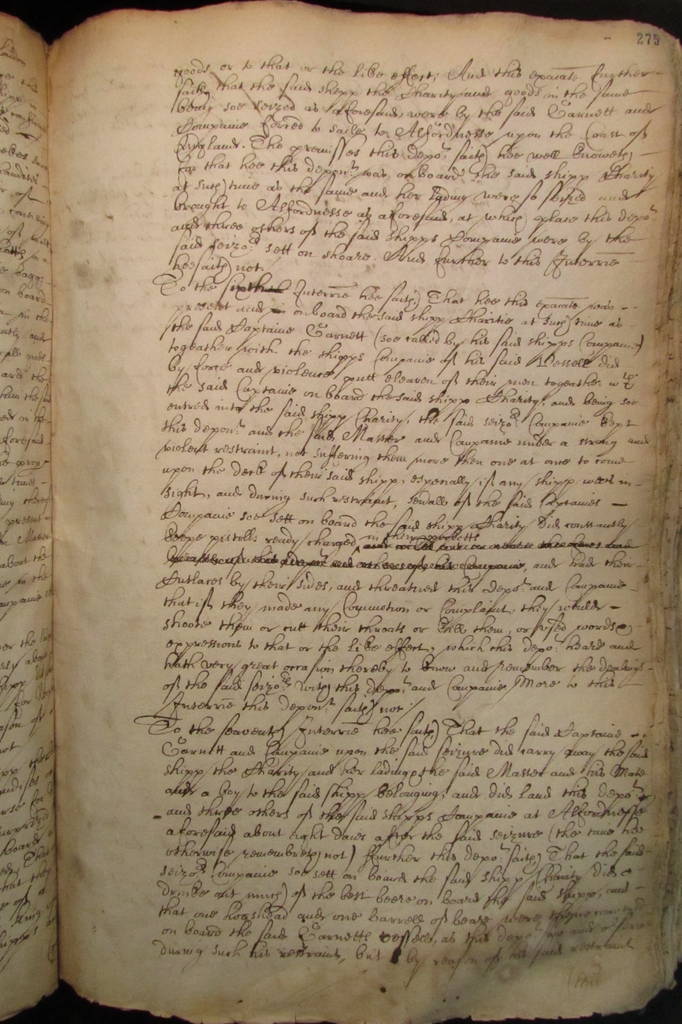 275
goods, or to that or the like effect; And this examinate further
saith, that the said shipp the Charity and goods in the same
being soe seized as aforesaid, were by the said Garnett and
Companie forced to saile to Alfordnesse upon the Coast of
England. The premisses this depot saith hee well knoweth,
for that hee this deponent was on board the said shipp Charity
at such time as the same and her lading were so seized and
brought to Alfordnesse as aforesaid, at which place this depot
and three others of the said shipps Companie were by the
said seizors sett on shoare. And further to this Interrie
hee saith not.
To the sixth Interrie hee saith, That hee this examinate was
present and on board the said shipp Charitie at such time as
the said Captaine Garnett (soe called by his said shipps Company)
togeather with the shipps Companie of his said Vessell did
by force and violence, putt eleaven of their men together wth
the said Captaine on board the said shipp Charity, and being soe
entred into the said shipp Charity, the said seizors Companie kept
this deponent and the said Master and Companie under a strong and
violent restraint, not suffering them more then one at one to come
upon the deck of their said shipp, especially if any shipp were in
sight, and during such restraint, severall of the said Captaines
Companie soe sett on board the said shipp Charity did continually
keepe pistolls ready charged in their pocketts
and had their
Cutlaces by their sides, and threatned this depot and Companie
that if they made any Commotion or Complaint, they would
shoote them or cutt their throats or kill them, or used words
expressions to that or the like effect, which this depot heard and
hath very great occasion thereby to know and remember the dealings
of the said seizors with this depot and Companie. More to this
Interrie this deponent saith not.
To the seaventh Interrie hee saith, That the said Captaine
Garnett and Companie upon the said seizure did carry away the said
shipp the Charity and her lading, the said Master and his Mate
and a boy to the said shipp belonging, and did land this depot
and three others of the said shipps Companie at Alfordnesse
aforesaid about eight daies after the said seizure (the time hee
otherwise remembreth not) Further this depot saith, That the said
seizors Companie soe sett on board the said shipp Charity did
drinke out much of the best beere on board the said shipp, and
that one hogshead and one barrell of beare were
on board the said Garnetts vessell, as this depot
during such his restraint, but by reason of his said restraint